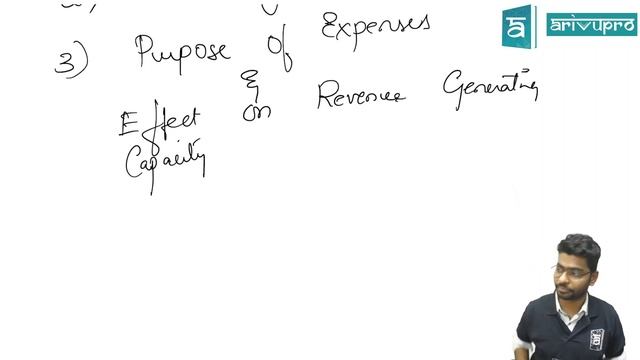 arivupro
3) Purpose Of Expenses
&
Effect on Revenue Generating
Capacity